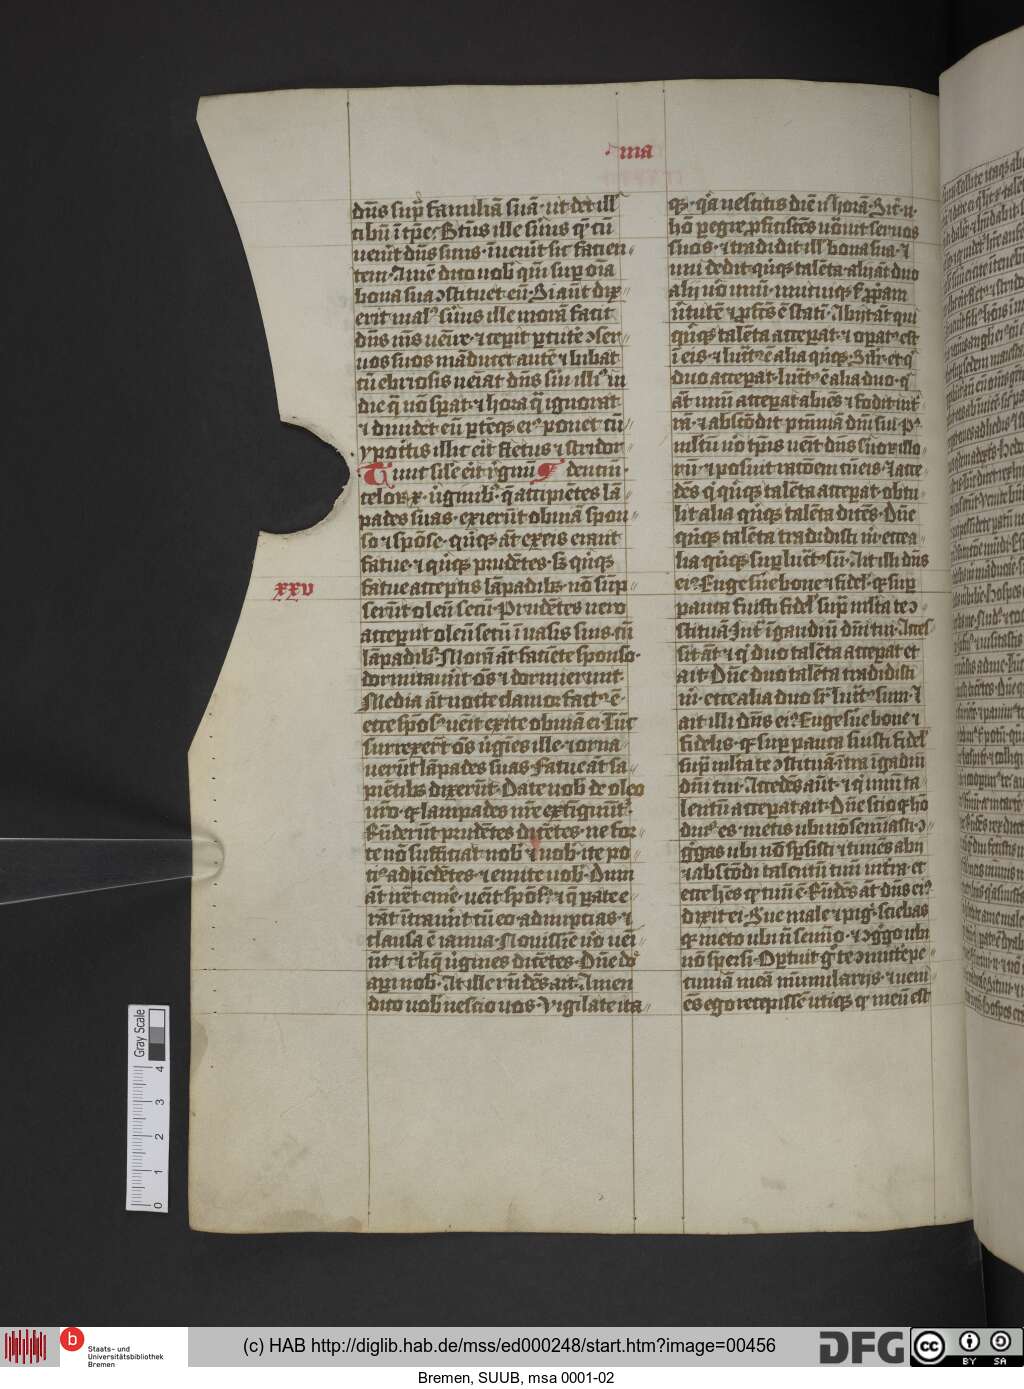 ma
dn̄s sup̄ familiā suā · ut det ill
cibū ī tp̄e. Bt̄us ille s̄uus qͥ cū
uen̄it dn̄s suus · īuen̄it sic facien
tem · Amē dico uob̄ qm̄ sup̄ om̄ia
bona sua ꝯstituet eū · Si aūt dix
erit malꝰ s̄uus ille morā facit
dn̄s m̄s uēire · ⁊ cep̄it ꝑcut̄e ꝯser
uos suos māducet autē ⁊ bibat
cū ebriosis ueīat dn̄s s̄ui illiꝰ in
die q̄ nō sp̄at · ⁊ hora qͣ ignorat
⁊ diuidet eū ꝑtēqꝫ eiꝰ ponet cū
ypoc̄tis illic erit fletus ⁊ stridor
Tunc sīle erit rͤgnū dentiū ·
celoꝝ x · ūginibꝰ · q̄ accipiētes lā
pades suas · exierūt obuiā spon
so ⁊ spōse · qͥnqꝫ āt ex eis erant
fatue · ⁊ qͥnqꝫ prudētes · Sꝫ qͥnqꝫ
xxv
fatue acceptis lāpadibꝫ · nō sūp
serūt oleū secū · Prudētes uero
accep̄unt oleū secū ī uasis suis · cū
lāpadibꝰ · Morā āt faciēte sponso ·
dormitauīt om̄s ⁊ dormierunt
Media āt nocte clamor factꝰ ē ·
ecce spōsꝰ uēit exite obuiā ei · Tūc
surrexer̄t om̄s ūgīes ille · ⁊ orna
uerūt lāpades suas · Fatue āt sa
piētibꝫ dixerūt · Date nob̄ de oleo
ur̄o · qꝛ lampades nr̄e extīguūtꝰ ·
Rn̄derūt prudētes dicētes · ne for
te nō sufficiat nob̄ ⁊ uob̄ · ite po
ciꝰ ad uēdētes · ⁊ emite uob̄ · Dum
āt ir̄et emē · uēit spōsꝰ · ⁊ q̄ ꝑate e
rāt īt̄uer̄it cū eo ad nupcias · ⁊
clausa ē ianua · Nouissīe ūo uēi
ūt ⁊ rͤliq̄ ūgines dicētes · Dn̄e dn̄e
aꝑi nob̄ · At ille rn̄dēs ait · Amen
dico uob̄ nescio uos · Vigilate ita
qꝫ · qͥa nescitis diē nͨ horā · Sic̄ .n.
hō ꝑegͤ ꝓficiscēs uōuit seruos
suos · ⁊ tradidit ill̄ bona sua · ⁊
uni dedit qͥnqꝫ talēta · alij āt duo
alij ūo unū · unicuiqꝫ s̄ ꝓp̄am
ūtutē ⁊ ꝓfcūs ē stati · Abijt āt qui
qͥnqꝫ talēta accep̄at · ⁊ oꝑatꝰ est
ī eis · ⁊ lucͣtꝰ ē alia qͥnqꝫ · Silr̄ et qͥ
duo accep̄at · lucͣtꝰ ē alia duo · qͥ
āt unū accep̄at abiēs ⁊ fodit in t̄
rā · ⁊ abscōdit pc̄uniā dn̄i sui · Pꝰ
multū ūo tp̄ris uēit dn̄s s̄uoꝝ illo
rū · ⁊ posuit racōem cū eis · ⁊ acce
dēs qͥ qͥnqꝫ talēta accep̄at · obtu
lit alia qͥnqꝫ talēta dicēs · Dn̄e
qͥnqꝫ talēta tradidisti m̄ · ecce a
lia qͥnqꝫ suꝑlucͣtꝰ sū · Ait illi dn̄s
eiꝰ · Euge s̄ue bone ⁊ fidel̄ · qꝛ suꝑ
pauca fuisti fidel̄ sup̄ m̄lta te ꝯ
stituā · Int̄ ī gaudiū dn̄i tui · Acces
sit āt ⁊ qͥ duo talēta accep̄at et
ait · Dn̄e duo talēta tradidisti
m̄ · ecce alia duo sꝛ̄ lucͣtꝰ sum · ⁊
ait illi dn̄s eiꝰ · Euge s̄ue bone ⁊
fidelis · qꝛ suꝑ pauca fuisti fidel̄
sup̄ m̄lta te ꝯstituā · ītra ī gadiū
dn̄i tui · Accedēs aūt · ⁊ qͥ unū ta
lentū accep̄at ait · Dn̄e scio qꝛ hō
durꝰ es · metis ubi nō seminasti · ꝯ
gͤgas ubi nō sp̄sisti ⁊ timēs abij
⁊ abscōdi talentū tuū in t̄ra · et
ecce hēs qꝛ tuū ē · Rn̄dēs āt dn̄s eiꝰ
dixit ei · S̄ue male ⁊ pigͤ · sciebas
qꝛ meto ubi n̄ semīo · ⁊ ꝯgͤgo ubi
nō sꝑsi · Oꝑtuit gͦ te ꝯmitt̄e pe
cuniā meā nūmularijs · ⁊ ueni
ēs ego recepissē utiqꝫ qꝛ meū est
Gray Scale
4
3
2
1
0
Staats- und
Universitätsbibliothek
Bremen
(c) HAB http://diglib.hab.de/mss/ed000248/start.htm?image=00456
DFG
cc BY SA
Bremen, SUUB, msa 0001-02